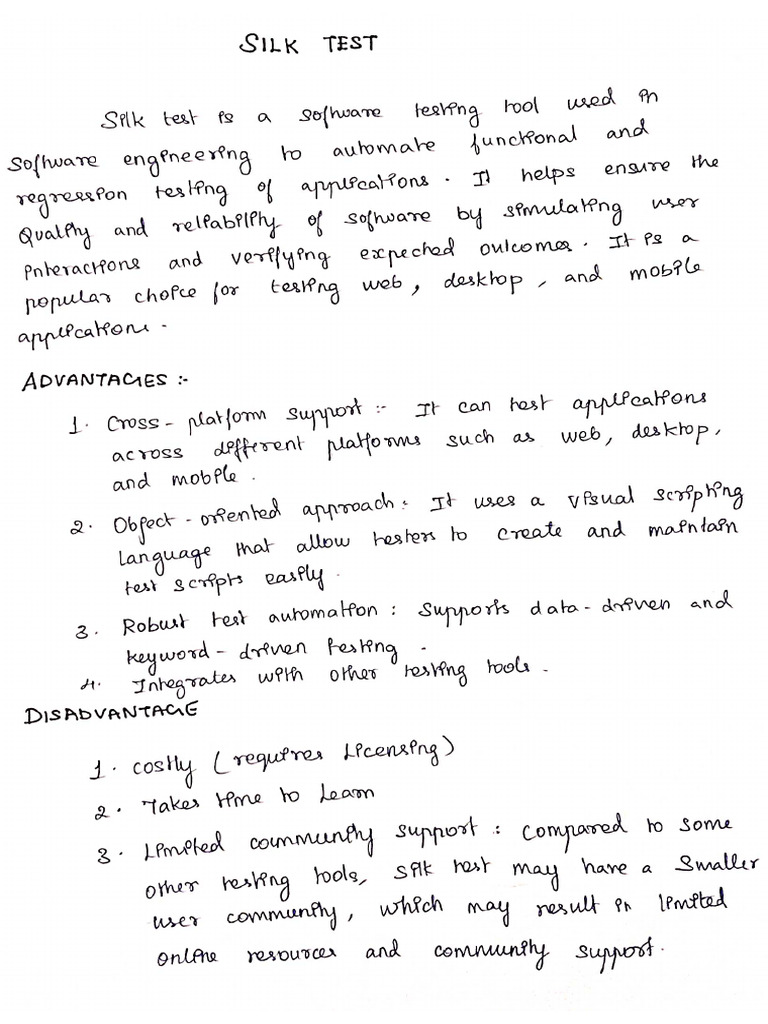 SILK TEST
Silk test is a software testing tool used in
software engineering to automate functional and
regression testing of applications. It helps ensure the
Quality and reliability of software by simulating user
interactions and verifying expected outcomes. It is a
popular choice for testing web, desktop, and mobile
applications.
ADVANTAGES :-
1. Cross-platform support :- It can test applications
across different platforms such as web, desktop,
and mobile.
2. Object-oriented approach: It uses a visual scripting
language that allow testers to create and maintain
test scripts easily.
3. Robust test automation: Supports data-driven and
keyword-driven testing.
4. Integrates with other testing tools.
DISADVANTAGE
1. costly (requires Licensing)
2. Takes time to Learn
3. Limited community support: Compared to some
other testing tools, silk test may have a smaller
user community, which may result in limited
online resources and community support.